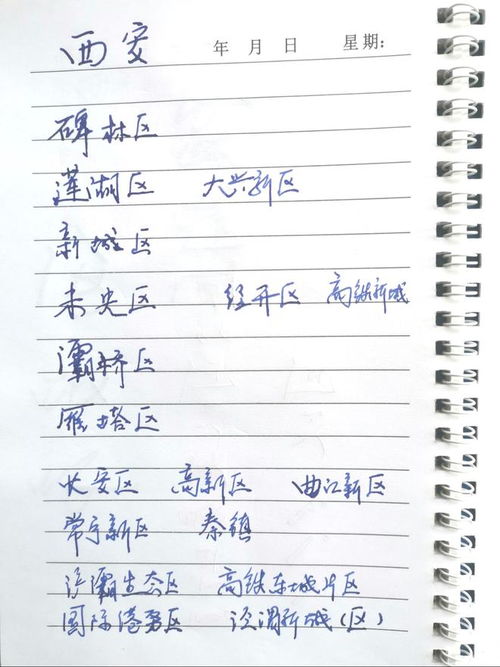 西安 年 月 日 星期:
碑林区
莲湖区 大兴新区
新城区
未央区 经开区 高铁新城
灞桥区
雁塔区
长安区 高新区 曲江新区
常宁新区 秦镇
浐灞生态区 高铁东城片区
国际港务区 泾渭新城(区)